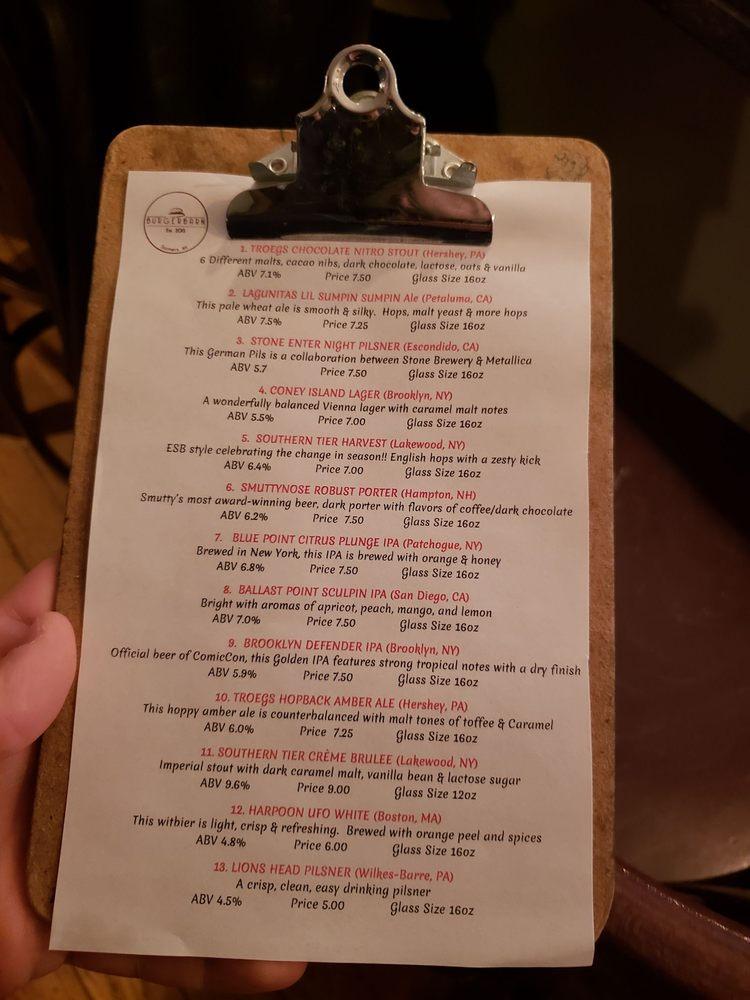 BURGERBARN
Est. 2015
Somers, NY
1. TROEGS CHOCOLATE NITRO STOUT (Hershey, PA)
6 Different malts, cacao nibs, dark chocolate, lactose, oats & vanilla
ABV 7.1% Price 7.50 Glass Size 16oz
2. LAGUNITAS LIL SUMPIN SUMPIN Ale (Petaluma, CA)
This pale wheat ale is smooth & silky. Hops, malt yeast & more hops
ABV 7.5% Price 7.25 Glass Size 16oz
3. STONE ENTER NIGHT PILSNER (Escondido, CA)
This German Pils is a collaboration between Stone Brewery & Metallica
ABV 5.7 Price 7.50 Glass Size 16oz
4. CONEY ISLAND LAGER (Brooklyn, NY)
A wonderfully balanced Vienna lager with caramel malt notes
ABV 5.5% Price 7.00 Glass Size 16oz
5. SOUTHERN TIER HARVEST (Lakewood, NY)
ESB style celebrating the change in season!! English hops with a zesty kick
ABV 6.4% Price 7.00 Glass Size 16oz
6. SMUTTYNOSE ROBUST PORTER (Hampton, NH)
Smutty's most award-winning beer, dark porter with flavors of coffee/dark chocolate
ABV 6.2% Price 7.50 Glass Size 16oz
7. BLUE POINT CITRUS PLUNGE IPA (Patchogue, NY)
Brewed in New York, this IPA is brewed with orange & honey
ABV 6.8% Price 7.50 Glass Size 16oz
8. BALLAST POINT SCULPIN IPA (San Diego, CA)
Bright with aromas of apricot, peach, mango, and lemon
ABV 7.0% Price 7.50 Glass Size 16oz
9. BROOKLYN DEFENDER IPA (Brooklyn, NY)
Official beer of ComicCon, this Golden IPA features strong tropical notes with a dry finish
ABV 5.9% Price 7.50 Glass Size 16oz
10. TROEGS HOPBACK AMBER ALE (Hershey, PA)
This hoppy amber ale is counterbalanced with malt tones of toffee & Caramel
ABV 6.0% Price 7.25 Glass Size 16oz
11. SOUTHERN TIER CRÈME BRULEE (Lakewood, NY)
Imperial stout with dark caramel malt, vanilla bean & lactose sugar
ABV 9.6% Price 9.00 Glass Size 12oz
12. HARPOON UFO WHITE (Boston, MA)
This witbier is light, crisp & refreshing. Brewed with orange peel and spices
ABV 4.8% Price 6.00 Glass Size 16oz
13. LIONS HEAD PILSNER (Wilkes-Barre, PA)
A crisp, clean, easy drinking pilsner
ABV 4.5% Price 5.00 Glass Size 16oz